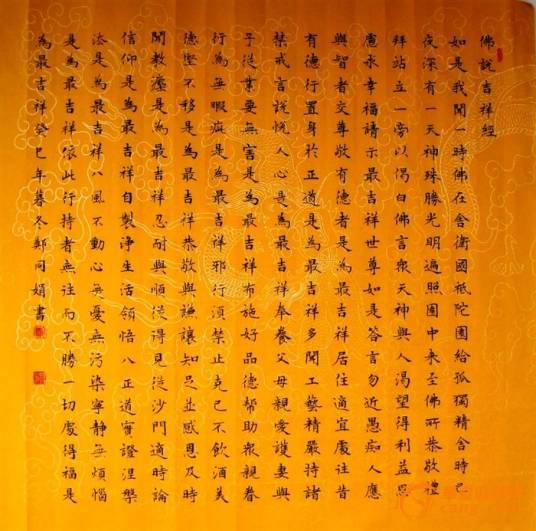 佛說吉祥經
如是我聞一時佛在舍衛國祇陀園給孤獨精舍時已
夜深有一天神殊勝光明遍照園中來至佛所恭敬禮
拜站立一旁以偈白佛言眾天神與人渴望得利益思
慮求幸福請示最吉祥世尊如是答言勿近愚痴人應
與智者交尊敬有德者是為最吉祥居住適宜處往昔
有德行置身於正道是為最吉祥多聞工藝精嚴持諸
禁戒言說悅人心是為最吉祥奉養父母親愛護妻與
子從業要無害是為最吉祥布施好品德幫助眾親眷
行為無瑕疵是為最吉祥邪行須禁止克己不飲酒美
德堅不移是為最吉祥恭敬與謙讓知足並感恩及時
聞教塵是為最吉祥忍耐與順從得見從沙門適時論
信仰是為最吉祥自製淨生活領悟八正道實證涅槃
法是為最吉祥八風不動心無憂無污染寧靜無煩惱
是為最吉祥依此行持者無往而不勝一切處得福是
為最吉祥癸巳年暮冬鄭同娟書